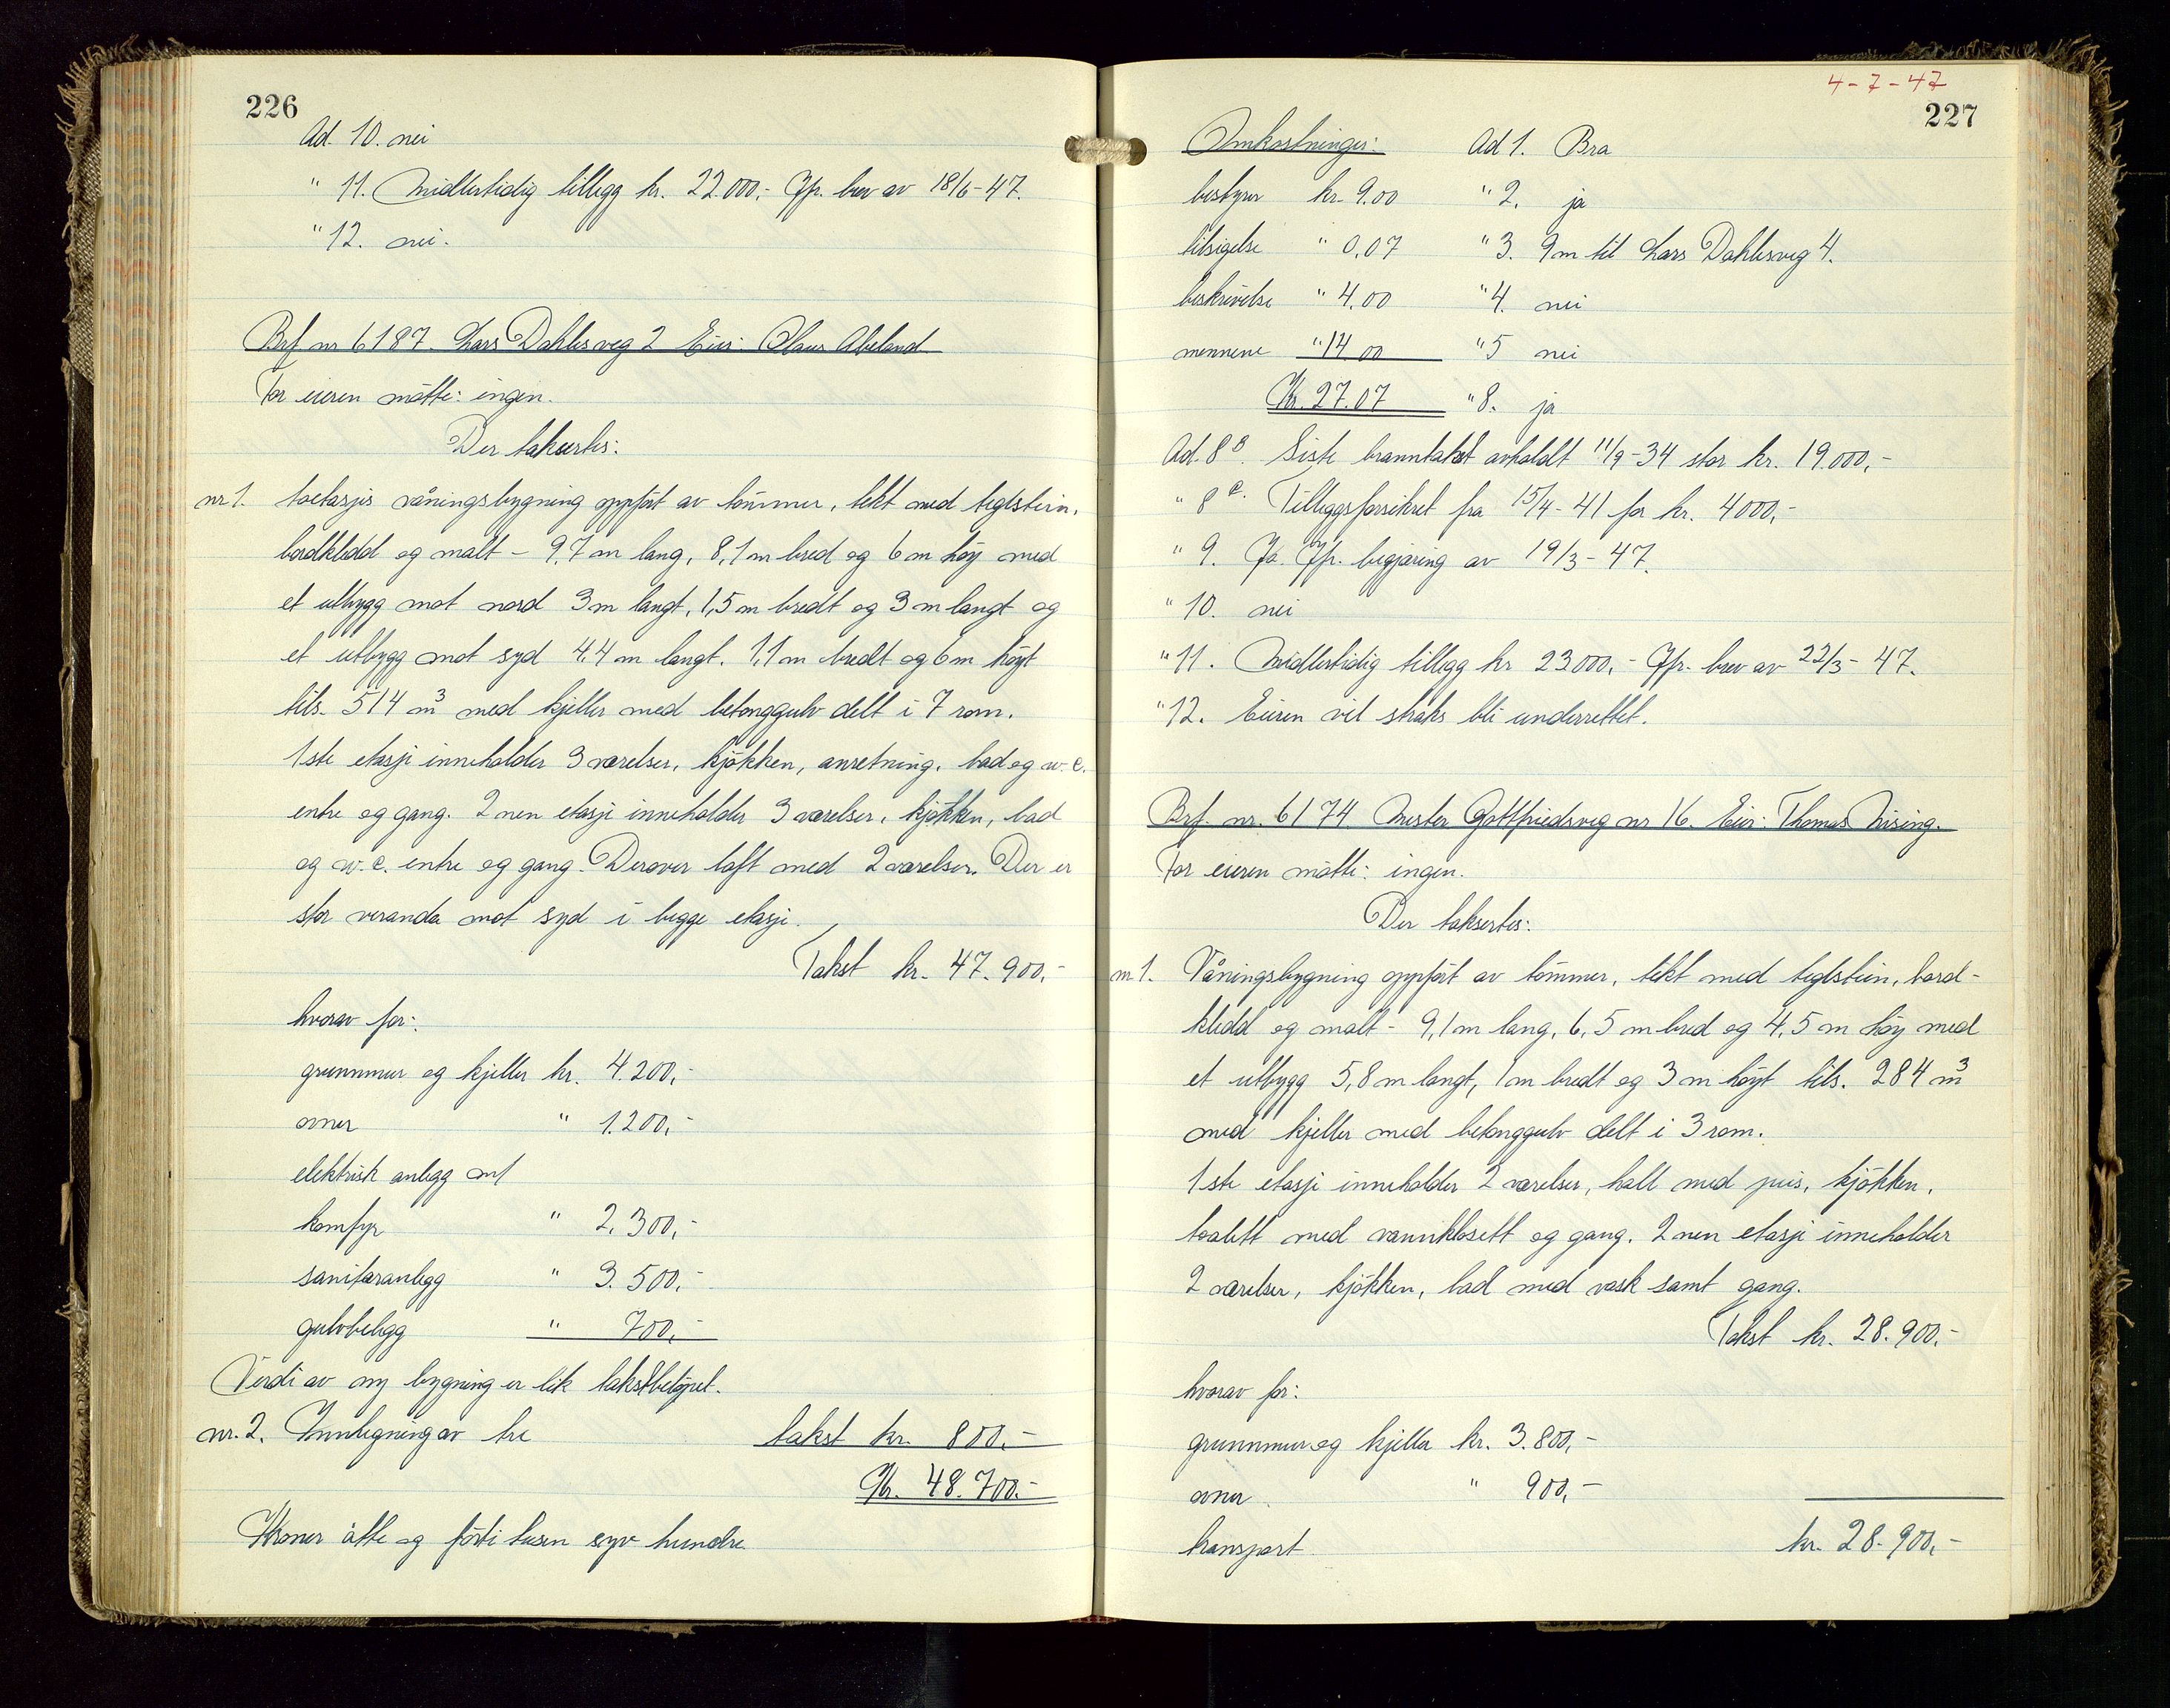 226
Ad. 10. nei
" 11. Midlertidig tillegg kr. 22.000,- Jfr. brev av 18/6-47.
" 12. nei.
Brf nr 6187. Lars Dahles veg 2 Eier: Olaus Abeland
For eieren møtte: ingen.
Der takseres:
nr 1. toetasjes våningsbygning oppført av tømmer, tekt med teglstein,
bordkledd og malt - 9,7 m lang, 8,1 m bred og 6 m høy med
et utbygg mot nord 3 m langt, 1,5 m bredt og 3 m langt og
et utbygg mot syd 4,4 m langt, 1,1 m bredt og 6 m høyt
tils. 514 m³ med kjeller med betonggulv delt i 7 rom.
1ste etasje inneholder 3 værelser, kjøkken, anretning, bad og w.c.
entre og gang. 2nen etasje inneholder 3 værelser, kjøkken, bad
og w.c. entre og gang. Derover loft med 2 værelser. Der er
stor veranda mot syd i begge etasje.
Takst kr. 47.900,-
hvorav for:
grunnmur og kjeller kr. 4.200,-
ovner " 1.200,-
elektrisk anlegg m/
komfyr " 2.300,-
sanitæranlegg " 3.500,-
gulvbelegg " 700,-
Verdi av ny bygning er lik takstbeløpet.
nr. 2. Innhegning av tre takst kr. 800,-
Kr. 48.700,-
Kroner åtte og førti tusen syv hundre
4-7-47
227
Omkostninger: Ad 1. Bra
bestyrer kr. 9.00 " 2. ja
tilsigelse " 0,07 " 3. 9 m til Lars Dahlesveg 4.
beskrivelse " 4.00 " 4. nei
mennene " 14 00 " 5 nei
Kr. 27.07 " 8. ja
Ad. 8 B. Siste branntakst avholdt 11/9-34 stor kr. 19.000,-
" 8 C. Tilleggsforsikret fra 15/4-41 for kr. 4000,-
" 9. Ja. Jfr. begjæring av 19/3-47.
" 10. nei
" 11. Midlertidig tillegg kr 23.000,- Jfr. brev av 22/3-47.
" 12. Eieren vil straks bli underrettet.
Brf. nr. 6174 Mester Gottfriedsveg nr 16. Eier: Thomas Nising.
For eieren møtte: ingen.
Der takseres:
nr 1. Våningsbygning oppført av tømmer, tekt med teglstein, bord-
kledd og malt - 9,1 m lang, 6,5 m bred og 4,5 m høy med
et utbygg 5,8 m langt, 1 m bredt og 3 m høyt tils. 284 m³
med kjeller med betonggulv delt i 3 rom.
1ste etasje inneholder 2 værelser, hall med peis, kjøkken,
toalett med vannklosett og gang. 2nen etasje inneholder
2 værelser, kjøkken, bad med vask samt gang.
Takst kr. 28.900,-
hvorav for:
grunnmur og kjeller kr. 3.800,-
ovner " 900,-
transport kr. 28.900,-